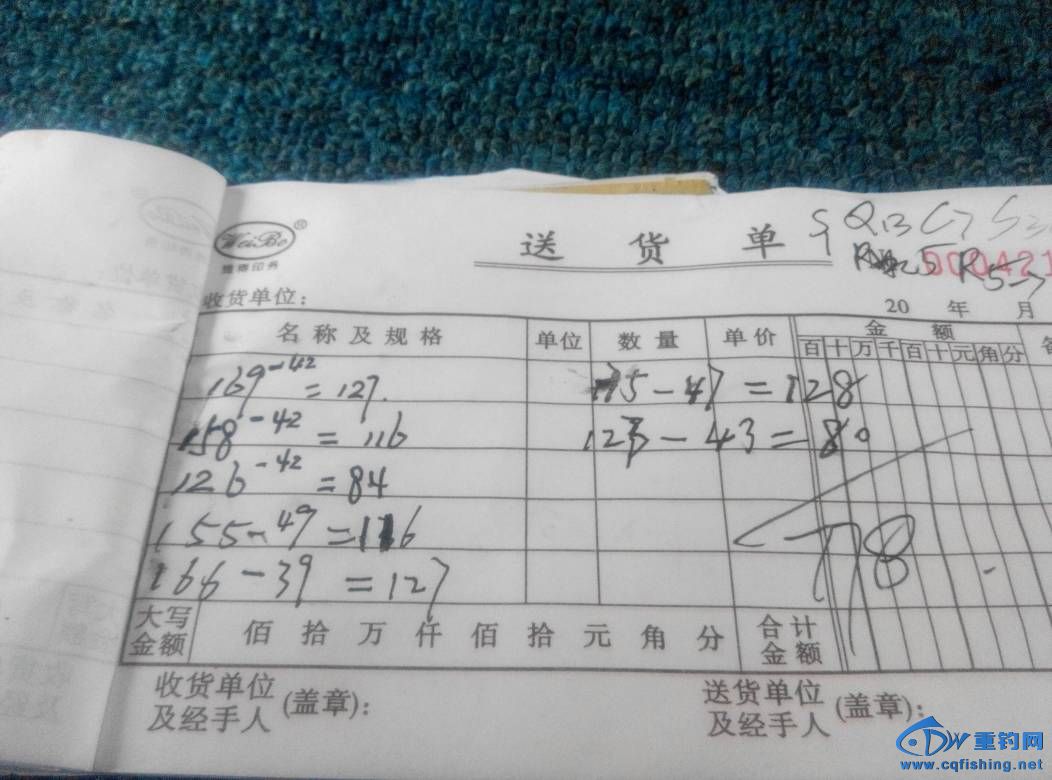 WeiBo®
维博印务
送货单
S Q13 C7
5 R5-7
000421
收货单位：
20 年 月
名称及规格 单位 数量 单价 金额
百十万千百十元角分
169-42=127. 175-47=128
158-42=116 123-43=80
126-42=84
155-49=116
166-39=127
78
大写金额 佰拾万仟佰拾元角分 合计金额
收货单位及经手人(盖章)： 送货单位及经手人(盖章)：
重钓网
www.cqfishing.net